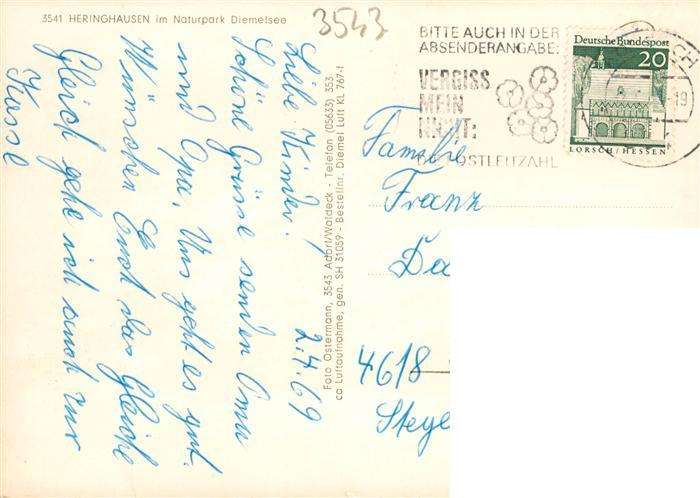 3541 HERINGHAUSEN im Naturpark Diemelsee
3543
BITTE AUCH IN DER
ABSENDERANGABE:
VERGISS
MEIN
NICHT:
POSTLEITZAHL
Deutsche Bundespost
20
LORSCH/HESSEN
19
2.4.69
Liebe Kinder!
Schöne Grüsse senden Oma
und Opa, Uns geht es gut.
Wünschen Euch das Gleiche
Gleich gehe ich zur
Foto Ostermann, 3543 Adorf/Waldeck - Telefon (05633) 353
ca Luftaufnahme, gen. SH 31059 - Bestellnr. Diemel Luft KL 767-f
Familie
Franz
Da
4618
Steye